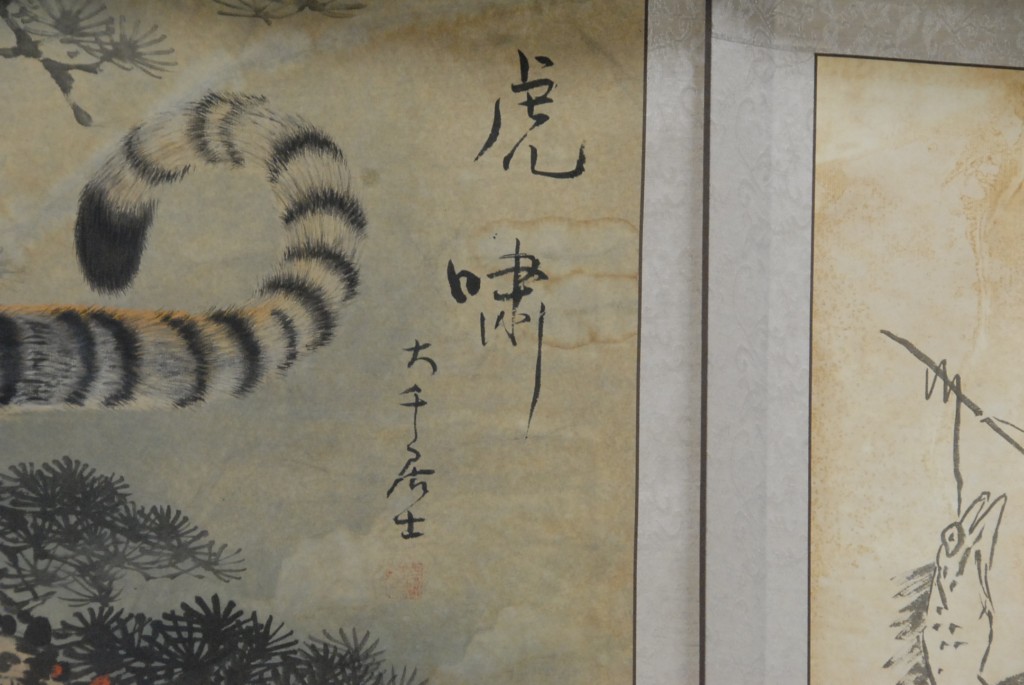 虎啸
大千居士